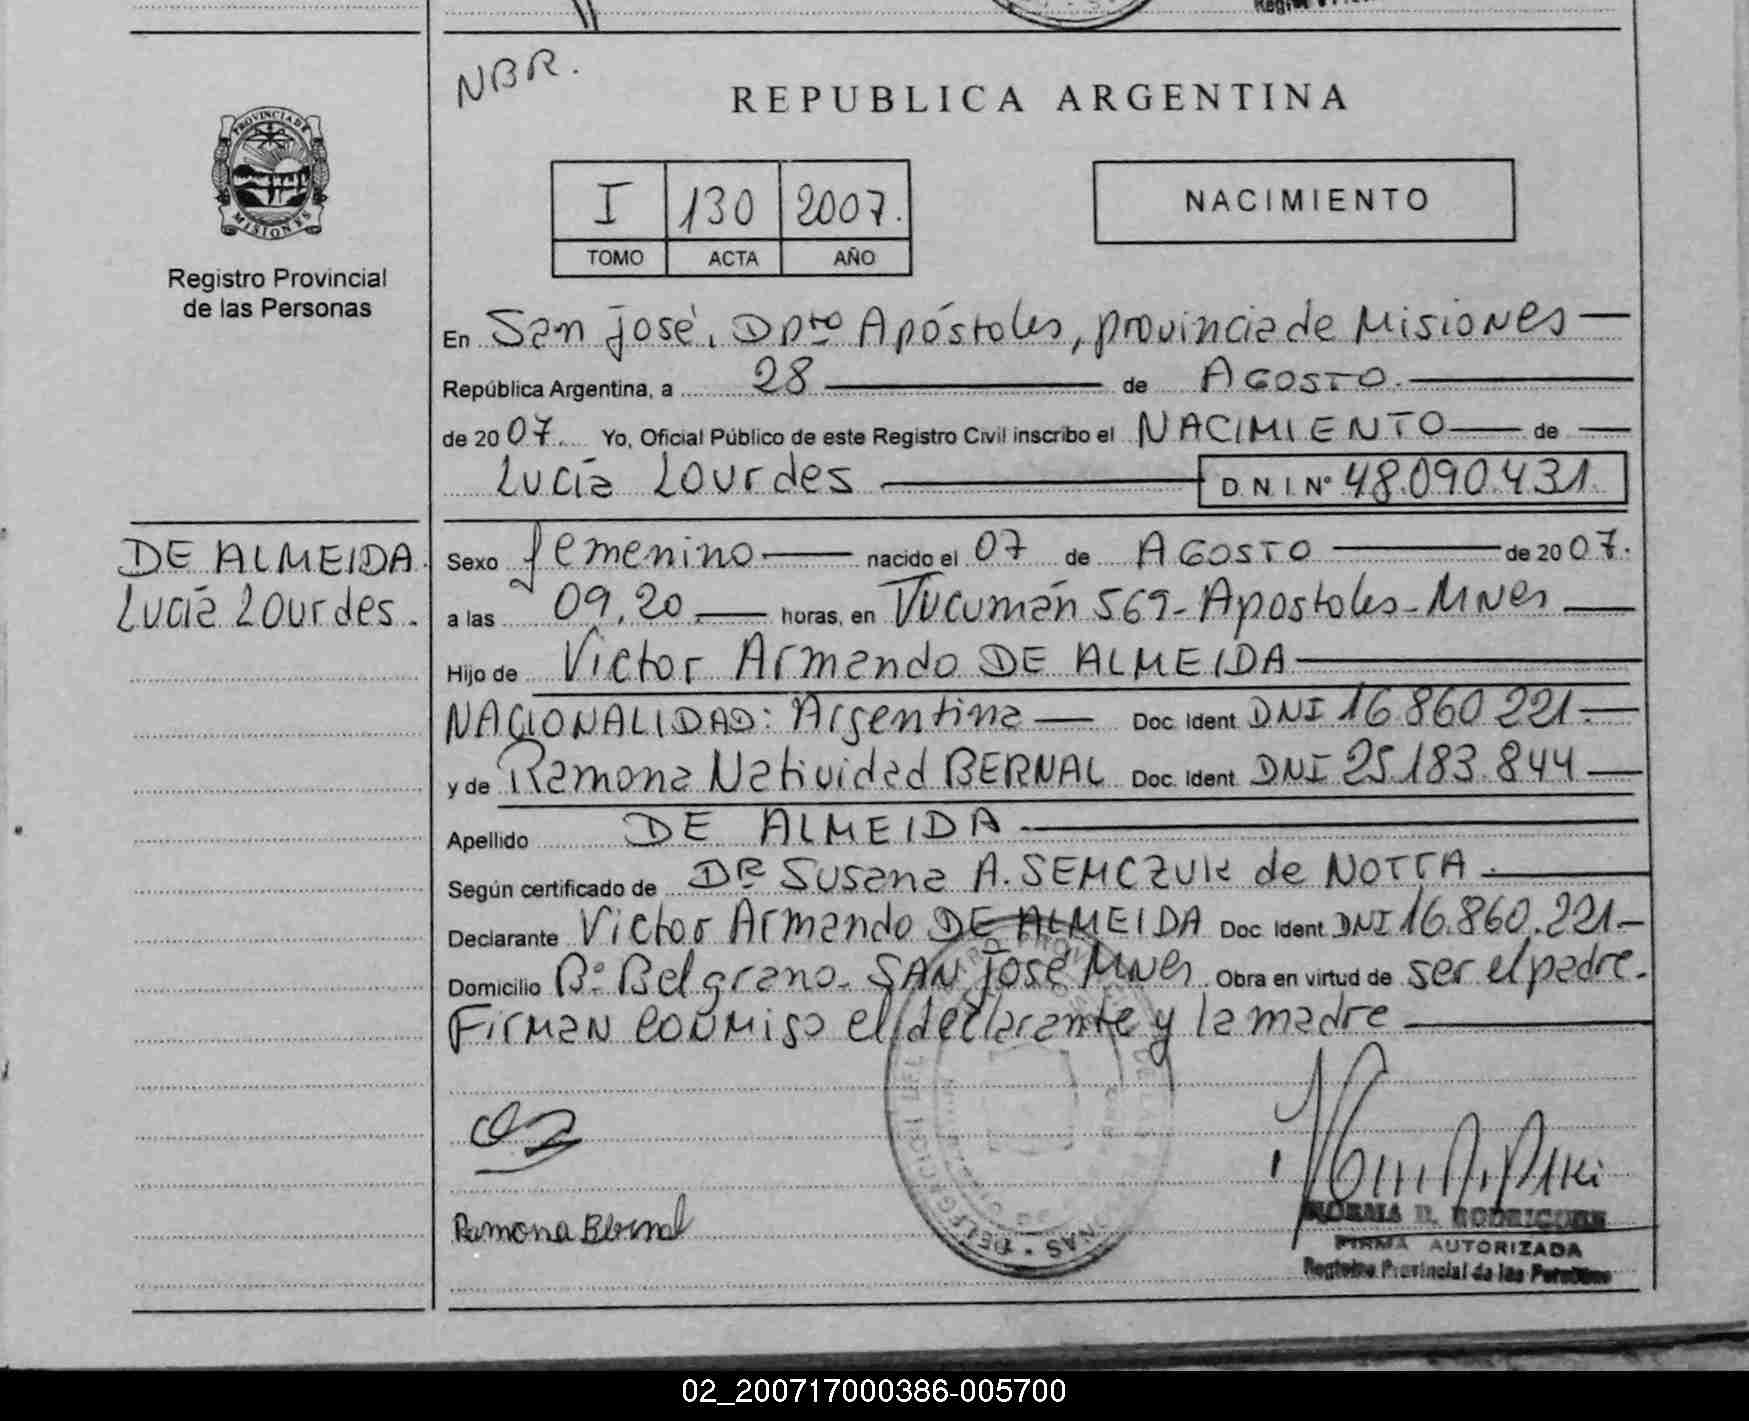 NBR.
REPUBLICA ARGENTINA
PROVINCIA DE
MISIONES
Registro Provincial
de las Personas
I 130 2007.
TOMO ACTA AÑO
NACIMIENTO
En San José, Dpto Apóstoles, provincia de Misiones
República Argentina, a 28 de AGOSTO.
de 2007. Yo, Oficial Público de este Registro Civil inscribo el NACIMIENTO de
Lucía Lourdes D.N.I.Nº 48.090.431.
DE ALMEIDA
Lucía Lourdes.
Sexo femenino nacido el 07 de AGOSTO de 2007.
a las 09,20 horas, en Tucumán 569 - Apostoles - Mnes
Hijo de Victor Armando DE ALMEIDA
NACIONALIDAD: Argentina Doc. Ident. DNI 16.860.221.
y de Ramona Natividad BERNAL Doc. Ident. DNI 25.183.844
Apellido DE ALMEIDA
Según certificado de DRa Susana A. SEMCZUK de NOTTA.
Declarante Victor Armando DE ALMEIDA Doc. Ident. DNI 16.860.221-
Domicilio Bº Belgrano. SAN José Mnes. Obra en virtud de ser el padre.
Firman conmigo el declarante y la madre
Ramona Bernal
FIRMA AUTORIZADA
Registro Provincial de las Personas
02_200717000386-005700